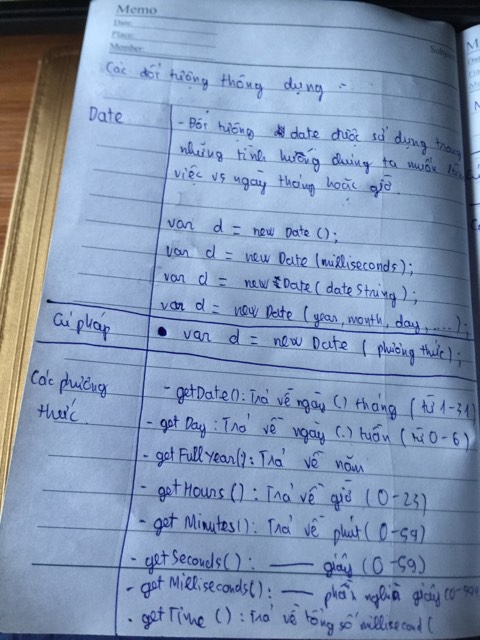 Memo
Date:
Place:
Member:
Các đối tượng thông dụng =
Date
- Đối tượng date được sử dụng trong
những tình huống chúng ta muốn làm
việc vs ngày tháng hoặc giờ
var d = new Date ();
var d = new Date (milliseconds);
var d = new Date (dateString);
var d = new Date (year, month, day, ....);
Cú pháp
• var d = new Date ( phương thức);
Các phương
thức.
- getDate(): Trả về ngày (.) tháng ( từ 1-31)
- get Day: Trả về ngày (.) tuần ( từ 0-6)
- get FullYear(): Trả về năm
- getHours (): Trả về giờ (0-23)
- get Minutes(): Trả về phút ( 0-59)
- getSeconds(): —— giây (0-59)
- get Milliseconds(): —— phần nghìn giây (0-999
- getTime (): Trả về tổng số millisecond (